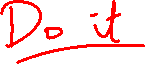 Do it